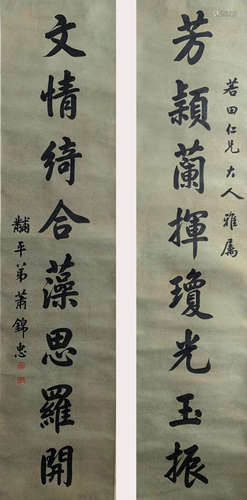 芳穎蘭揮瓊光玉振
若田仁兄大人雅屬
文情綺合藻思羅開
黼平弟蕭錦忠